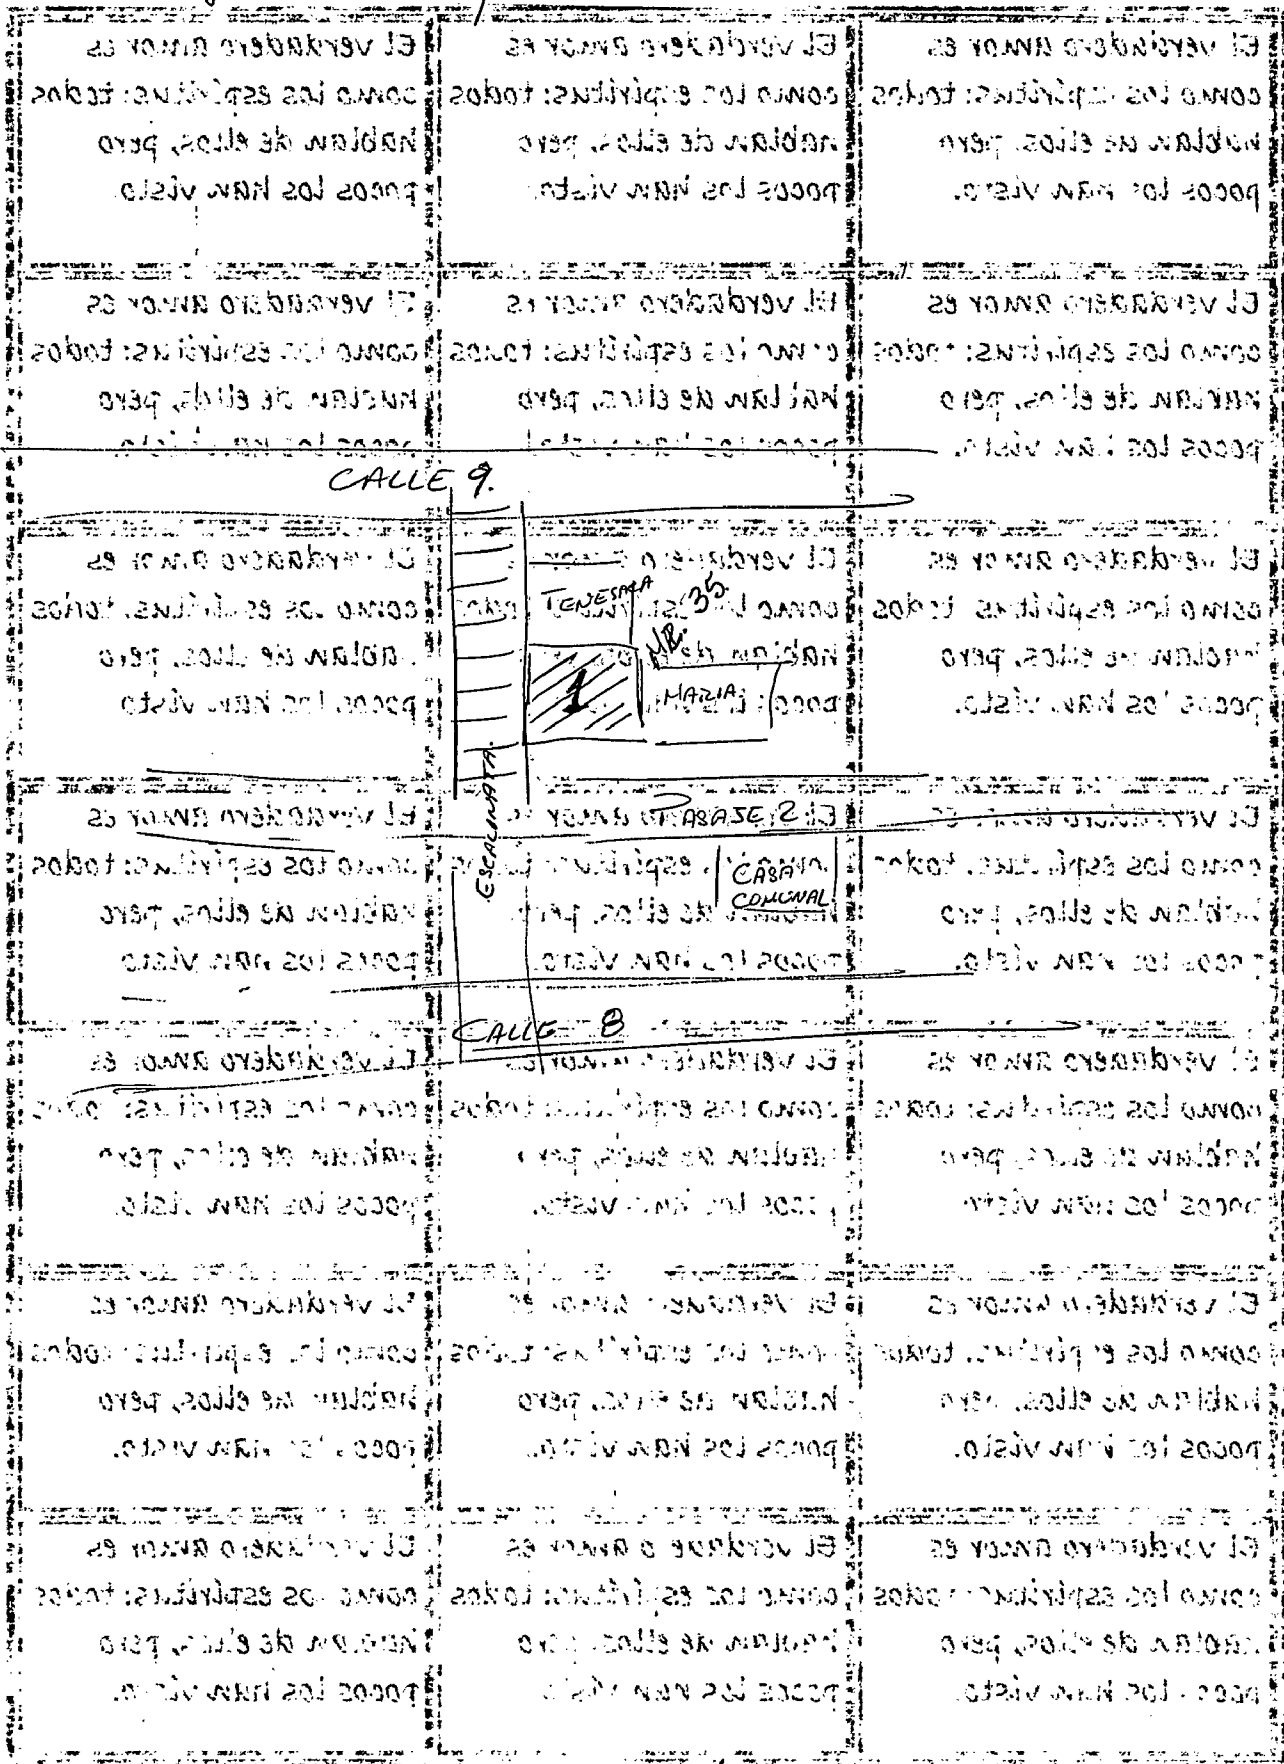 El verdadero amor es
como los espíritus: todos
hablan de ellos, pero
pocos los han visto.
El verdadero amor es
como los espíritus: todos
hablan de ellos, pero
pocos los han visto.
El verdadero amor es
como los espíritus: todos
hablan de ellos, pero
pocos los han visto.
El verdadero amor es
como los espíritus: todos
hablan de ellos, pero
pocos los han visto.
El verdadero amor es
como los espíritus: todos
hablan de ellos, pero
pocos los han visto.
El verdadero amor es
como los espíritus: todos
hablan de ellos, pero
pocos los han visto.
CALLE 9.
El verdadero amor es
como los espíritus: todos
hablan de ellos, pero
pocos los han visto.
El verdadero amor es
como los espíritus: todos
hablan de ellos, pero
pocos los han visto.
El verdadero amor es
como los espíritus: todos
hablan de ellos, pero
pocos los han visto.
TENESACA
35
1
MARIA
ESCALINATA.
PASAJE 2
El verdadero amor es
como los espíritus: todos
hablan de ellos, pero
pocos los han visto.
El verdadero amor es
como los espíritus: todos
hablan de ellos, pero
pocos los han visto.
El verdadero amor es
como los espíritus: todos
hablan de ellos, pero
pocos los han visto.
CASA
COMUNAL
CALLE 8
El verdadero amor es
como los espíritus: todos
hablan de ellos, pero
pocos los han visto.
El verdadero amor es
como los espíritus: todos
hablan de ellos, pero
pocos los han visto.
El verdadero amor es
como los espíritus: todos
hablan de ellos, pero
pocos los han visto.
El verdadero amor es
como los espíritus: todos
hablan de ellos, pero
pocos los han visto.
El verdadero amor es
como los espíritus: todos
hablan de ellos, pero
pocos los han visto.
El verdadero amor es
como los espíritus: todos
hablan de ellos, pero
pocos los han visto.
El verdadero amor es
como los espíritus: todos
hablan de ellos, pero
pocos los han visto.
El verdadero amor es
como los espíritus: todos
hablan de ellos, pero
pocos los han visto.
El verdadero amor es
como los espíritus: todos
hablan de ellos, pero
pocos los han visto.